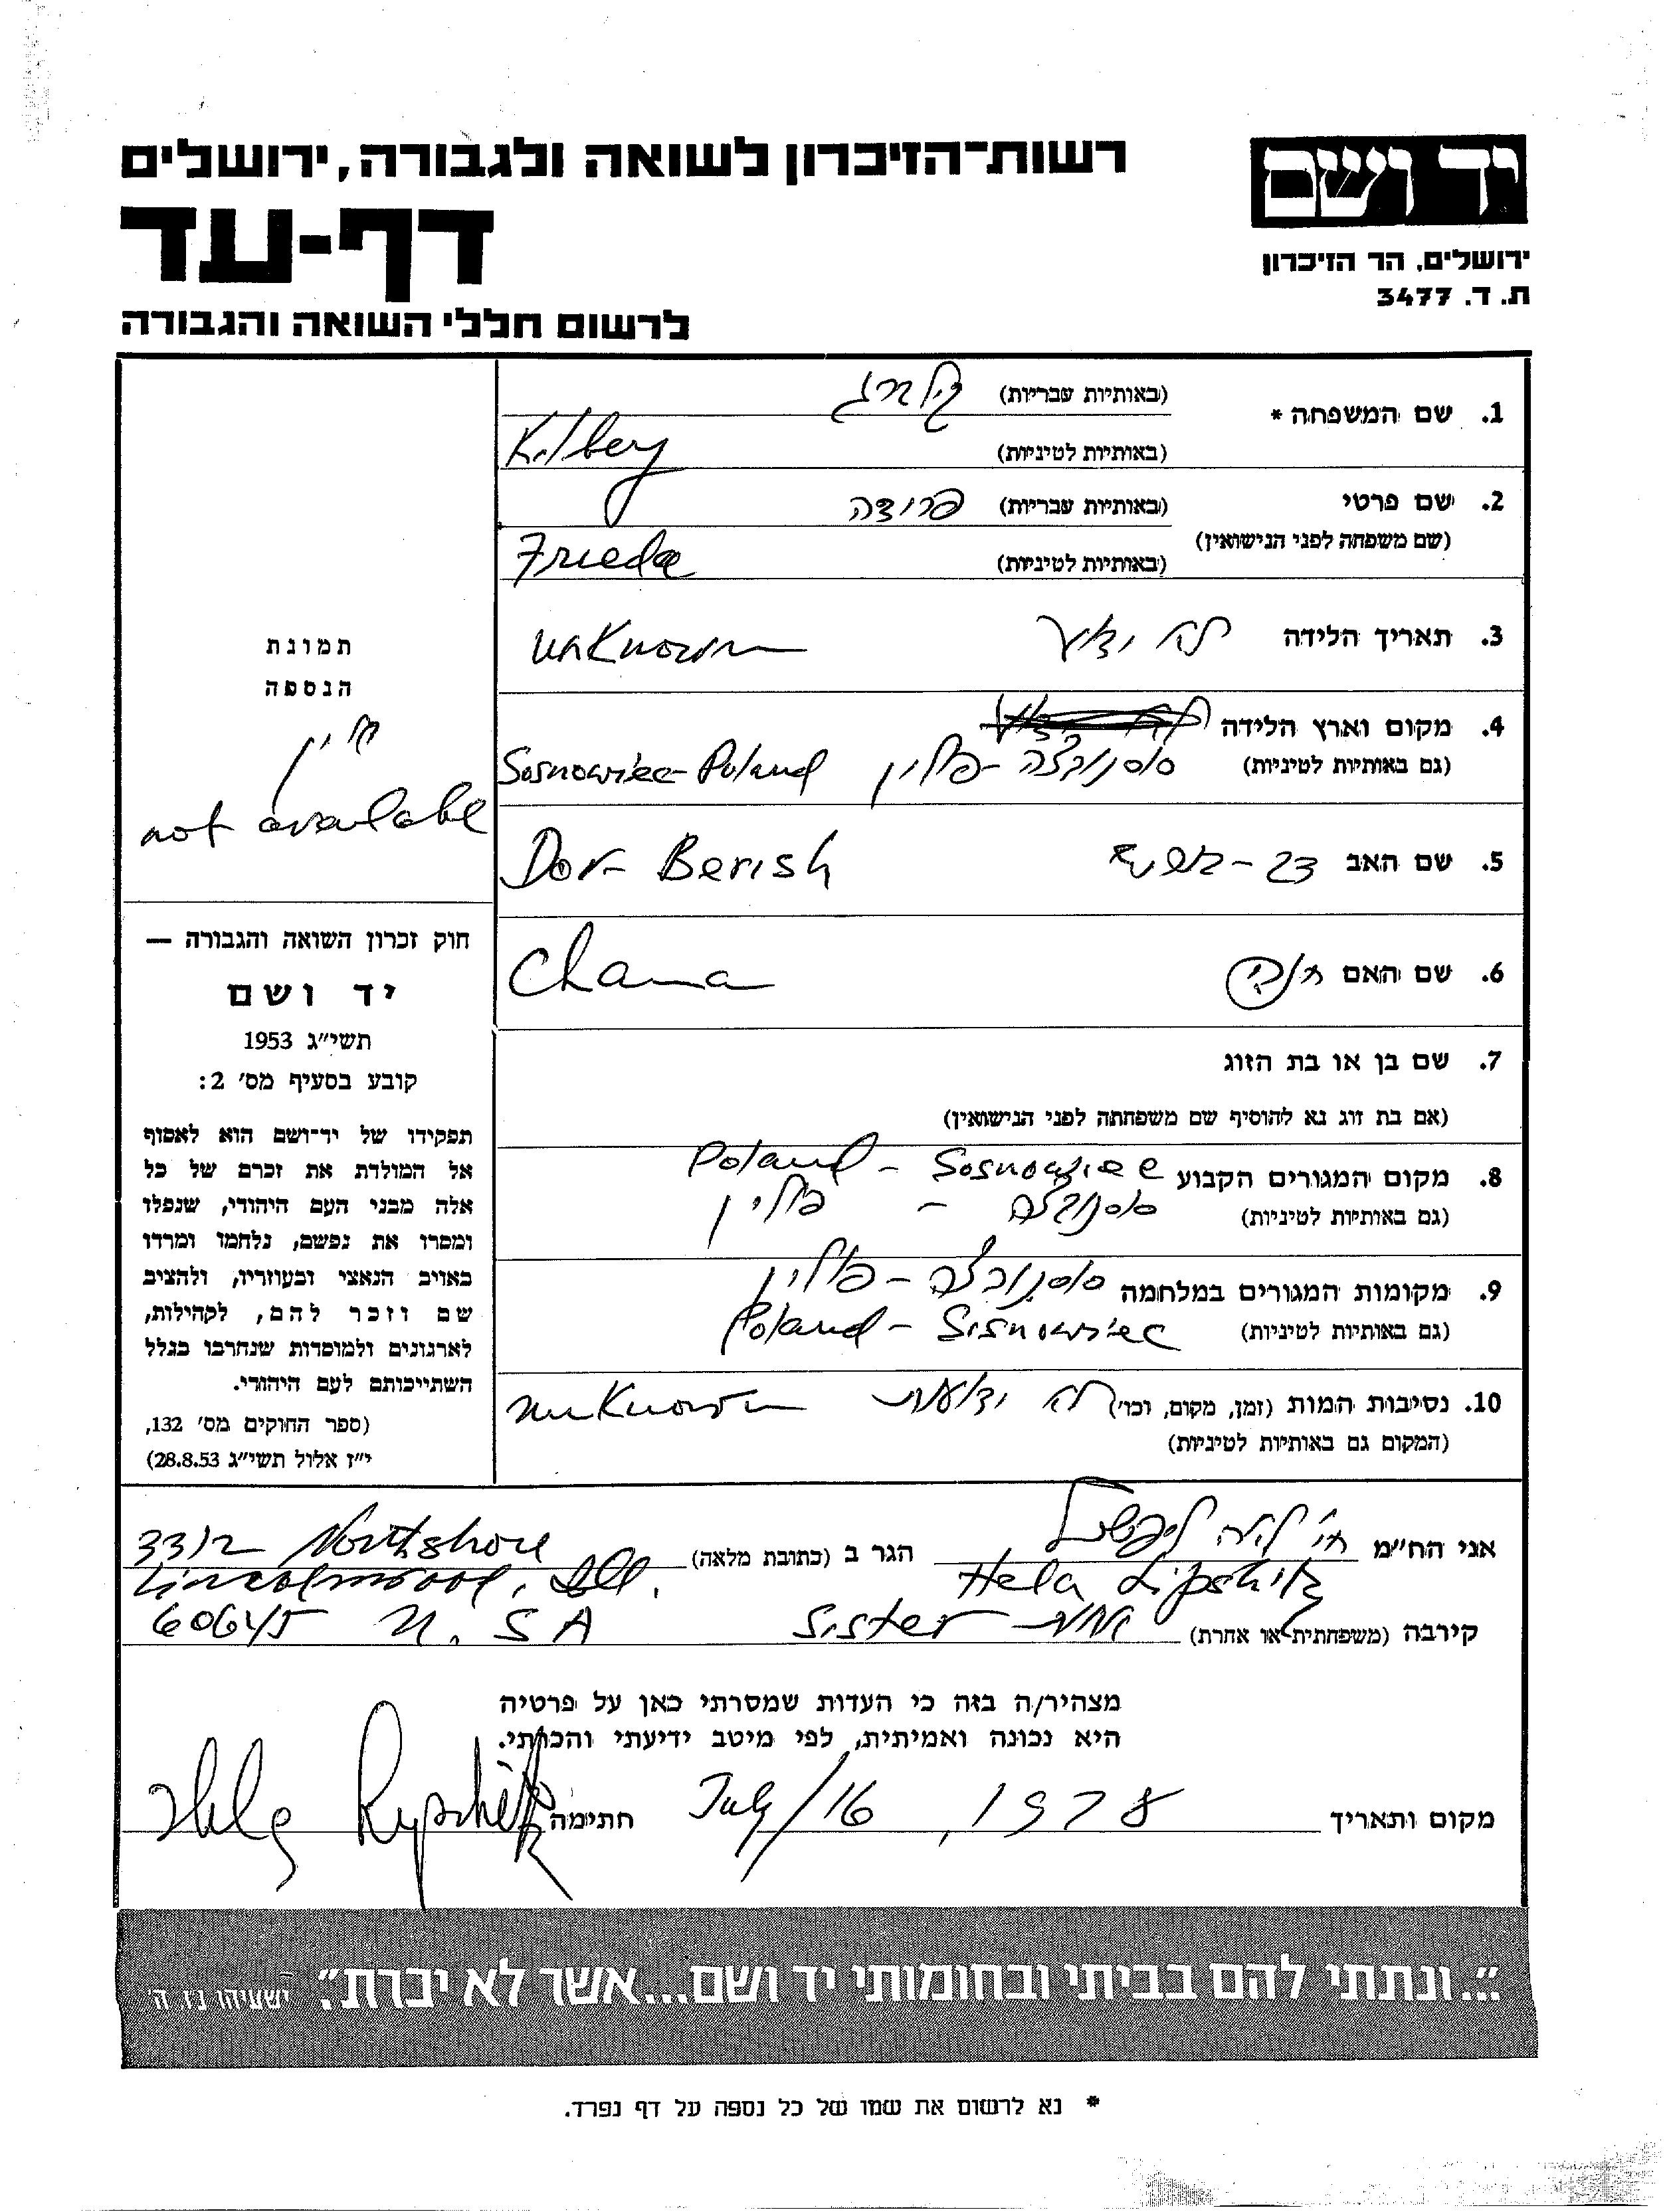 רשות־הזיכרון לשואה ולגבורה, ירושלים
דף-עד
לרשום חללי השואה והגבורה
יד ושם
ירושלים, הר הזיכרון
ת. ד. 3477
1. שם המשפחה * (באותיות עבריות) קילברג
(באותיות לטיניות) Kilberg
2. שם פרטי (באותיות עבריות) פרידה
(שם משפחה לפני הנישואין)
(באותיות לטיניות) Frieda
3. תאריך הלידה לא ידוע unknown
4. מקום וארץ הלידה
(גם באותיות לטיניות) סוסנובצה - פולין Sosnowiec - Poland
5. שם האב דב - בריש Dov - Berish
6. שם האם חנה Chana
7. שם בן או בת הזוג
(אם בת זוג נא להוסיף שם משפחתה לפני הנישואין)
8. מקום המגורים הקבוע Poland - Sosnowiec
(גם באותיות לטיניות) סוסנובצה - פולין
9. מקומות המגורים במלחמה סוסנובצה - פולין
(גם באותיות לטיניות) Poland - Sosnowiec
10. נסיבות המות (זמן, מקום, וכו') לא ידועות unknown
(המקום גם באותיות לטיניות)
תמונת
הנספה
אין
not available
חוק זכרון השואה והגבורה —
יד ושם
תשי"ג 1953
קובע בסעיף מס' 2:
תפקידו של יד־ושם הוא לאסוף
אל המולדת את זכרם של כל
אלה מבני העם היהודי, שנפלו
ומסרו את נפשם, נלחמו ומרדו
באויב הנאצי ובעוזריו, ולהציב
שם וזכר להם, לקהילות,
לארגונים ולמוסדות שנחרבו בגלל
השתייכותם לעם היהודי.
(ספר החוקים מס' 132,
י"ז אלול תשי"ג 28.8.53)
אני הח"מ ליפשיץ הגר ב (כתובת מלאה) 3312 Northshore
Hela Lipshitz Lincolnwood, Ill.
קירבה (משפחתית או אחרת) אחות Sister 60645 U.S.A
מצהיר/ה בזה כי העדות שמסרתי כאן על פרטיה
היא נכונה ואמיתית, לפי מיטב ידיעתי והכרתי.
מקום ותאריך July/16, 1978 חתימה
"...ונתתי להם בביתי ובחומותי יד ושם...אשר לא יכרת". ישעיהו נו, ה'
* נא לרשום את שמו של כל נספה על דף נפרד.